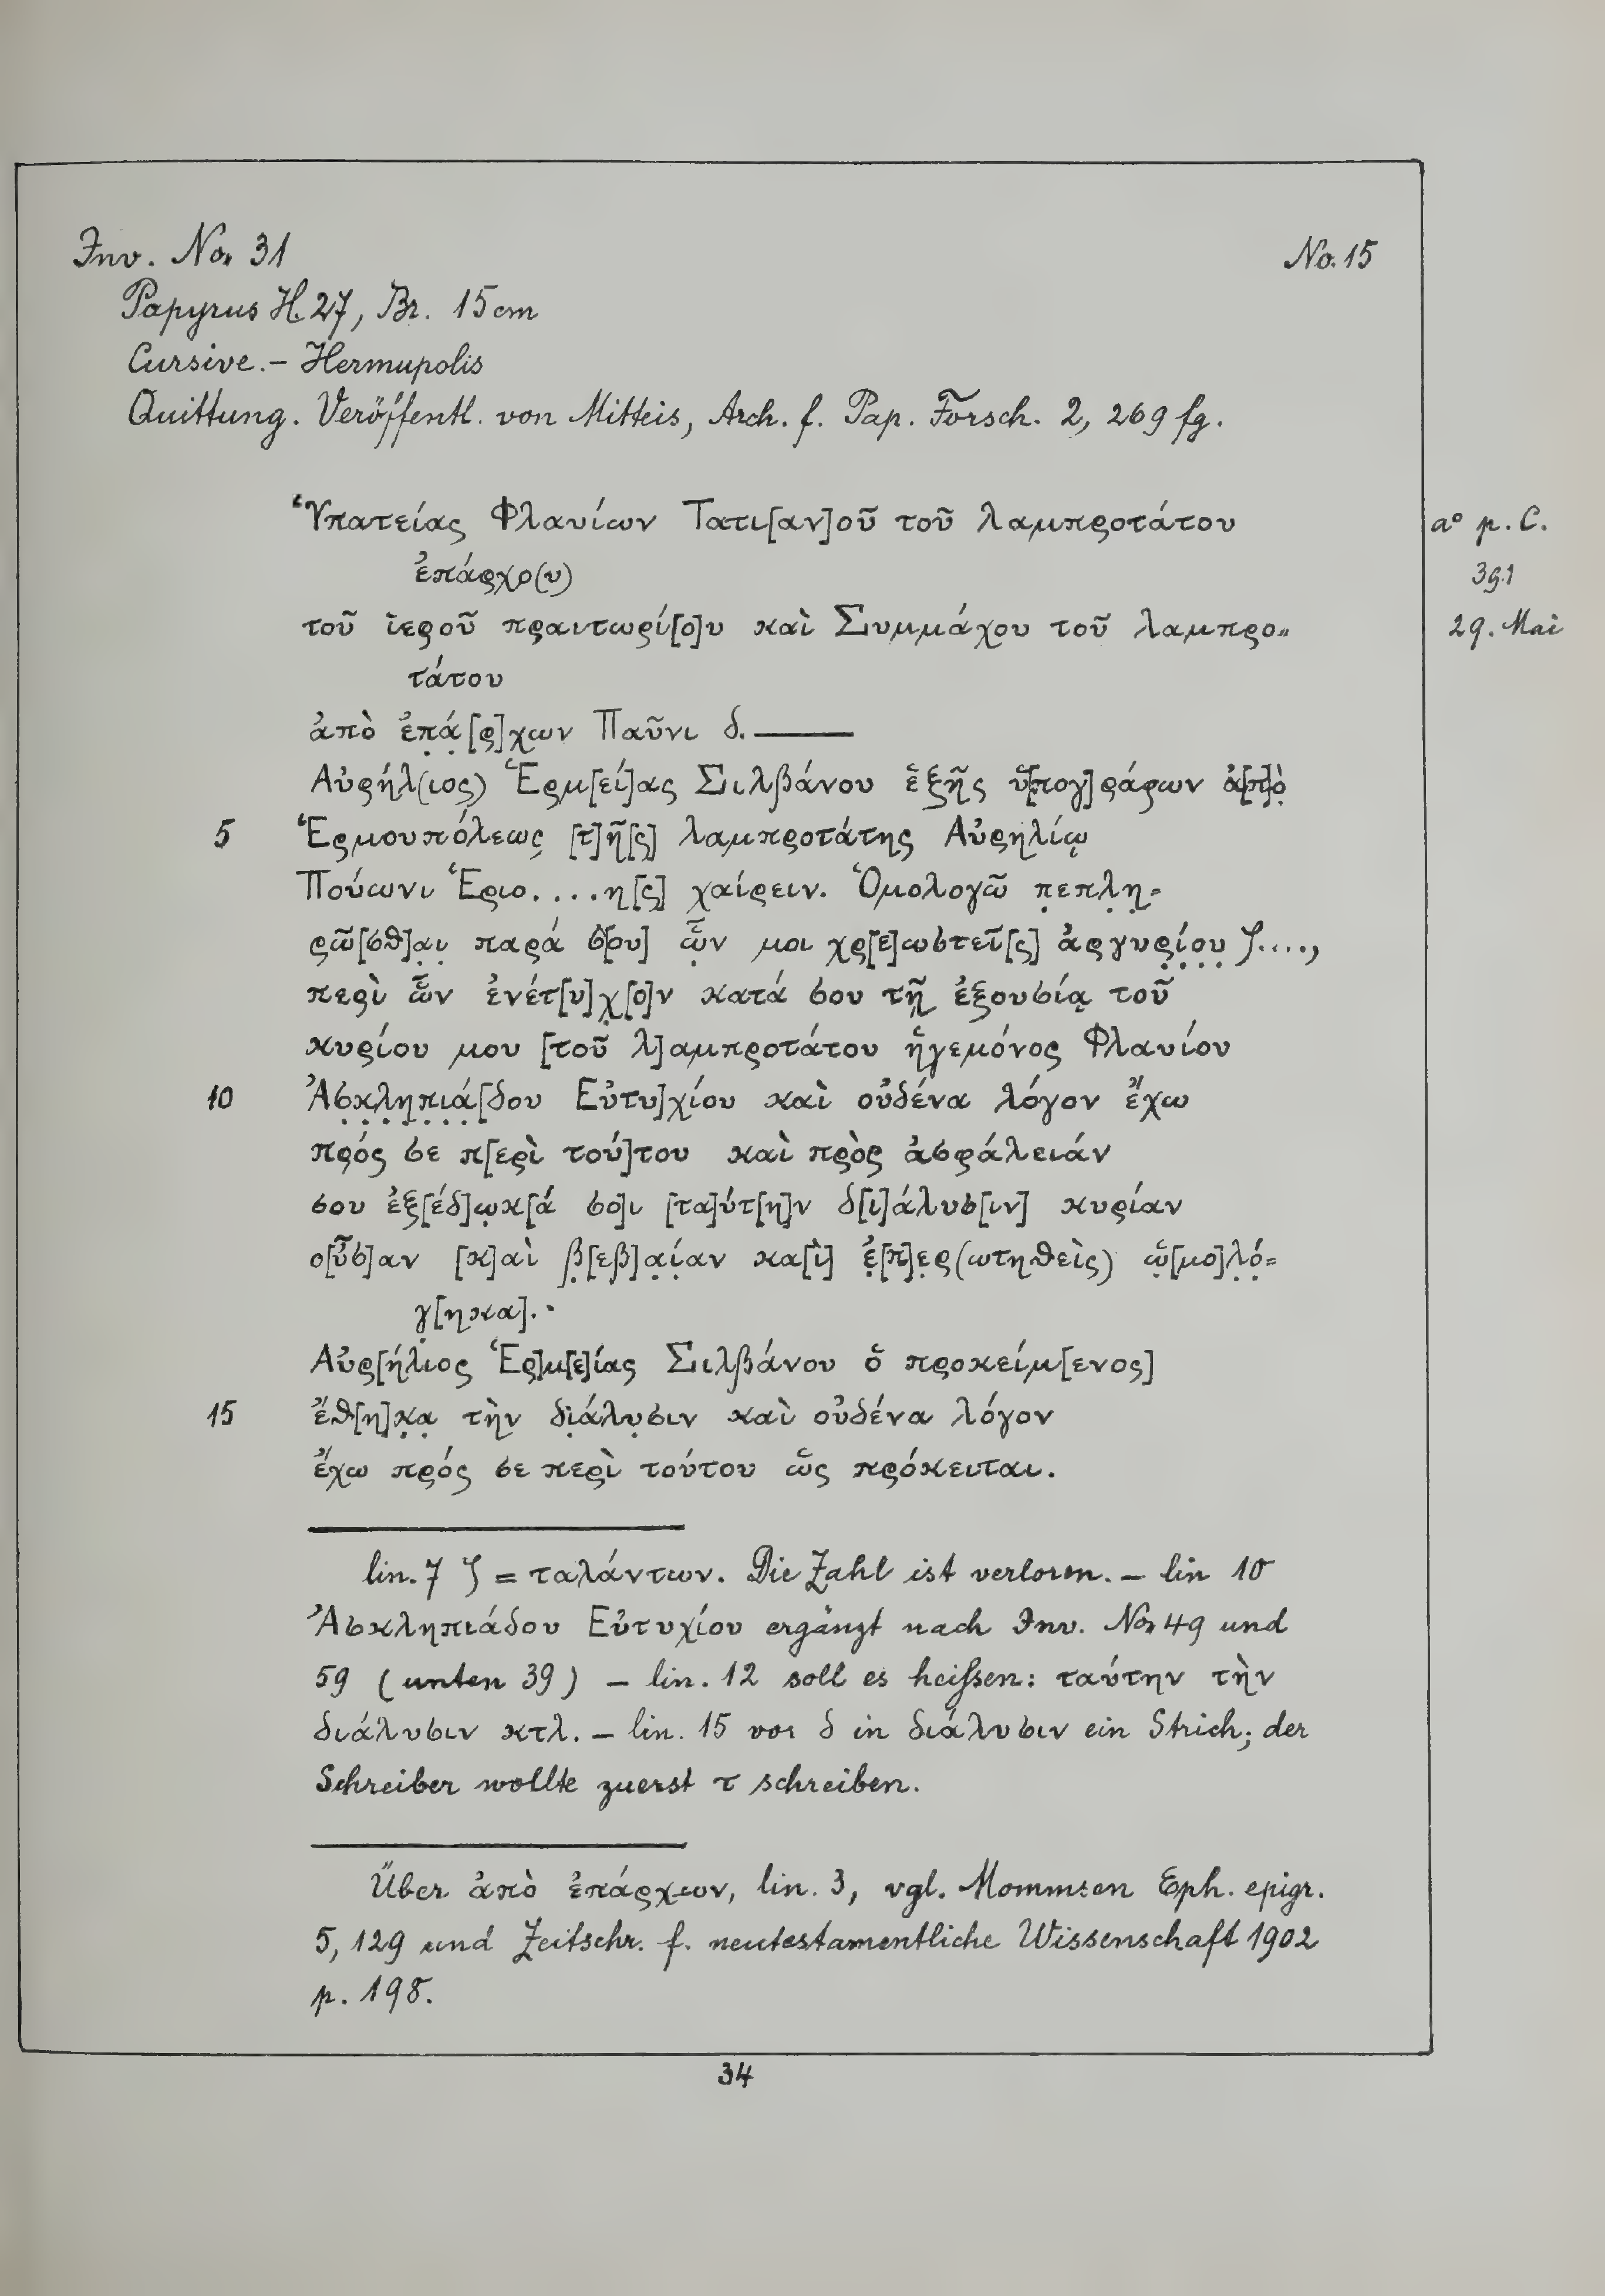 Inv. No. 31 No. 15
Papyrus H. 27, Br. 15 cm
Cursive. – Hermupolis
Quittung. Veröffentl. von Mitteis, Arch. f. Pap. Forsch. 2, 269 fg.
Ὑπατείας Φλαυίων Τατι[αν]οῦ τοῦ λαμπροτάτου a° p. C.
ἐπάρχο(υ) 391
τοῦ ἱεροῦ πραιτωρί[ο]υ καὶ Συμμάχου τοῦ λαμπρο- 29. Mai
τάτου
ἀπὸ ἐπ̣ά̣[ρ]χων Παῦνι δ. —
Αὐρήλ(ιος) Ἑρμ[εί]ας Σιλβάνου ἑξῆς ὑ[πογ]ράφων ἀ[π]ὸ̣
5 Ἑρμουπόλεως̣ [τ]ῆ[ς] λαμπροτάτης Αὐρηλίῳ
Πούωνι Ἑριο....η[ς] χαίρειν. Ὁμολογῶ π̣επλ̣η̣-
ρῶ[σθ]α̣ι̣ παρά σ[ου] ὧ̣ν μοι χρ[ε]ωστεῖ[ς] ἀργυρ̣ί̣ο̣υ̣ ϟ....,
περὶ ὧν ἐνέτ[υ]χ̣[ο]ν κατά σου τῇ ἐξουσίᾳ τοῦ
κυρίου μου [τοῦ λ]αμπροτάτου ἡγεμόνος Φλαυίου
10 Ἀσ̣κ̣λ̣η̣π̣ι̣ά̣[δου Εὐτυ]χίου καὶ οὐδένα λόγον ἔχω
πρός σε π[ερὶ τού]του καὶ πρὸς ἀσφάλειάν
σου ἐξ[έδ]ω̣κ[ά σο]ι [τα]ύτ[η]ν δ[ι]άλυσ[ιν] κυρίαν
ο[ὖσ]αν [κ]αὶ β̣[εβ]α̣ί̣αν κα[ὶ] ἐ̣[π]ε̣ρ(ωτηθεὶς) ὡ̣[μο]λ̣ό̣-
γ̣[ηκα]..
Αὐρ[ήλιος Ἑρ]μ[ε]ίας Σιλβάνου ὁ προκείμ[ενος]
15 ἔθ[η]κ̣α̣ τὴν δ̣ιάλυ̣σιν καὶ οὐδένα λόγον
ἔχω πρός σε περὶ τούτου ὡς πρόκειται.
lin. 7 ϟ = ταλάντων. Die Zahl ist verloren. – lin 10
Ἀσκληπιάδου Εὐτυχίου ergänzt nach Inv. No. 49 und
59 (unten 39) – lin. 12 soll es heißen: ταύτην τὴν
διάλυσιν κτλ. – lin. 15 vor δ in διάλυσιν ein Strich; der
Schreiber wollte zuerst τ schreiben.
Über ἀπὸ ἐπάρχων, lin. 3, vgl. Mommsen Eph. epigr.
5, 129 und Zeitschr. f. neutestamentliche Wissenschaft 1902
p. 198.
34